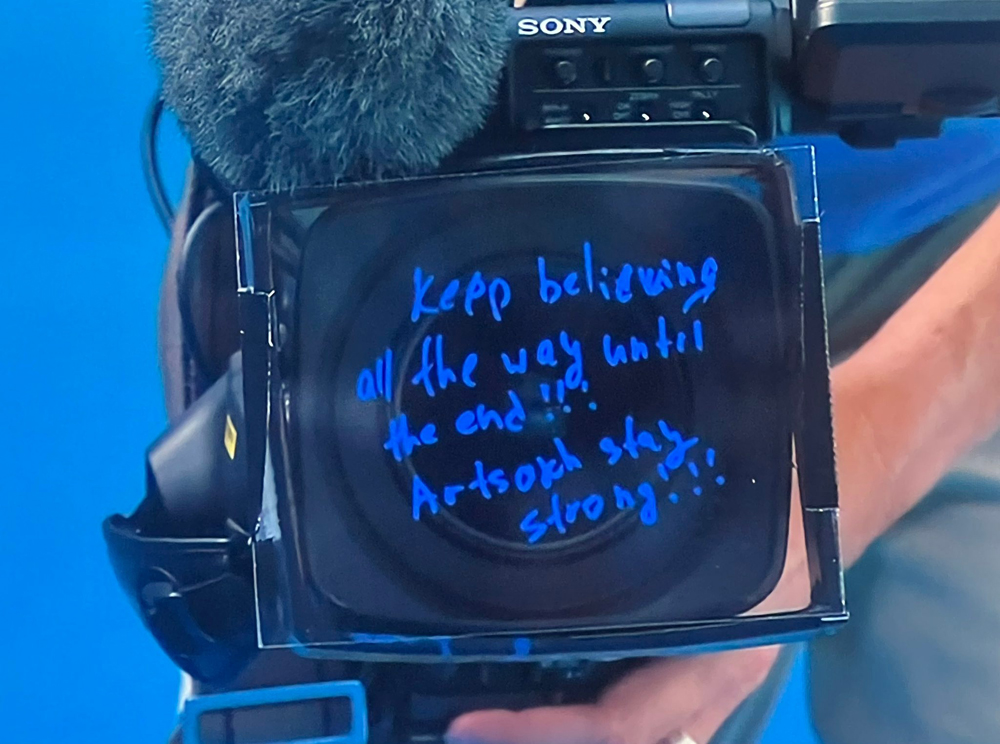 SONY
Kepp believing
all the way until
the end!!!
Artsakh stay
strong!!!